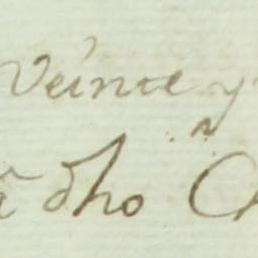 Veinte y
dho